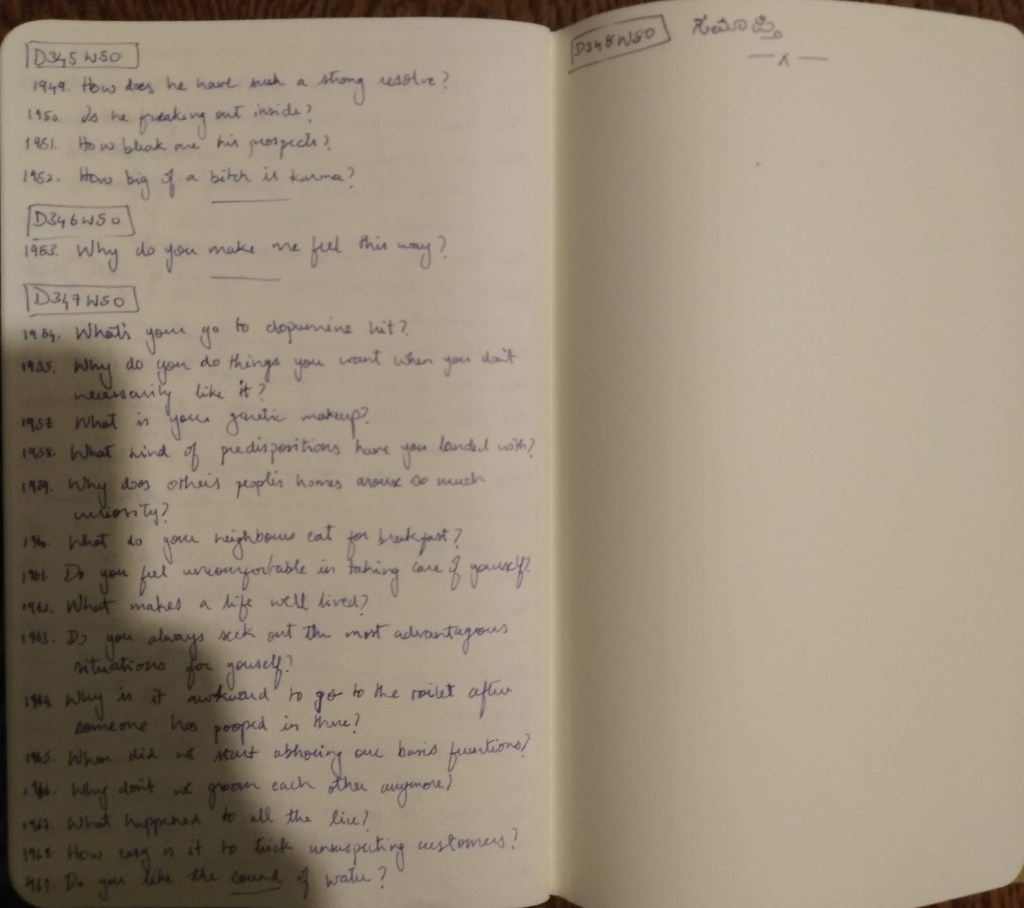 D345W50
1949. How does he have such a strong resolve?
1950. Is he freaking out inside?
1951. How bleak are his prospects?
1952. How big of a bitch is karma?
D346W50
1953. Why do you make me feel this way?
D347W50
1954. What's your go to dopamine hit?
1955. Why do you do things you want when you don't
necessarily like it?
1957. What is your genetic makeup?
1958. What kind of predispositions have you landed with?
1959. Why does other's people's homes arouse so much
curiosity?
1960. What do your neighbours eat for breakfast?
1961. Do you feel uncomfortable in taking care of yourself?
1962. What makes a life well lived?
1963. Do you always seek out the most advantagous
situations for youself?
1964. Why is it awkward to go to the toilet after
someone has pooped in there?
1965. When did we start abhoring our basis functions?
1966. Why don't we groom each other anymore?
1967. What happened to all the lice?
1968. How easy is it to trick unsuspecting customers?
1969. Do you like the sound of water?
D348W50 ಸಮಾಪ್ತಿ
— x —